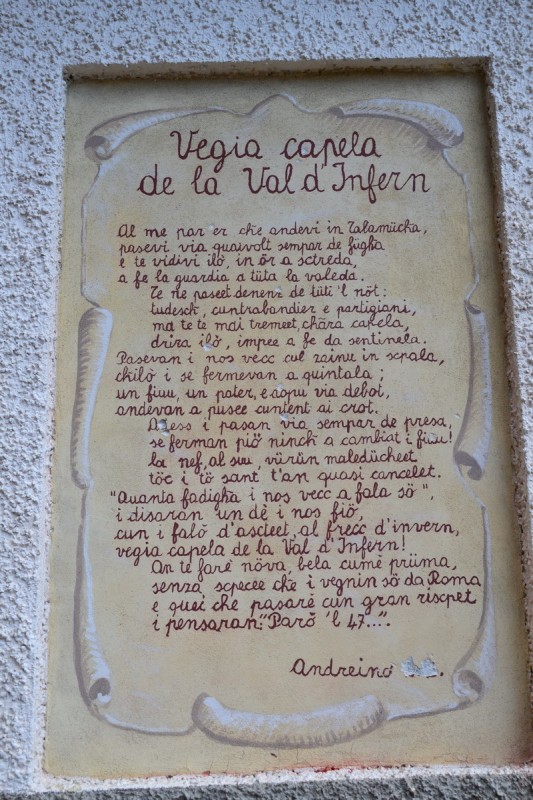 Vegia capela
de la Val d'Infern
Al me par er che andevi in Talamücka,
pasevi via quaivolt sempar de fugha
e te vidivi ilò, in òr a sctreda,
a fe la guardia a tüta la valeda.
Te ne paseet denenz de tüti 'l nöt:
tudesck, cuntrabandier e partigiani,
ma te te mai tremeet, chära capela,
driza ilò, impee a fe da sentinela.
Pasevan i nos vecc cul zainu in scpala,
chilò i se fermevan a quintala;
un fiuu, un pater, e aopu via debot,
andevan a pusee cuntent ai crot.
Adess i pasan via sempar de presa,
se ferman piö ninck a cambiat i fiuu!
la nef, al suu, vürün maledücheet
töc i tö sant t'an quasi cancelet.
"Quanta fadigha i nos vecc a fala sö",
i disaran un dè i nos fiö,
cun i falò d'ascleet, al frecc d'invern,
vegia capela de la Val d'Infern!
An te farè növa, bela cume prüma,
senza scpecee che i vegnin sö da Roma
e quei che pasarè cun gran riscpet
i pensaran: "Parò 'l 47...".
Andreino